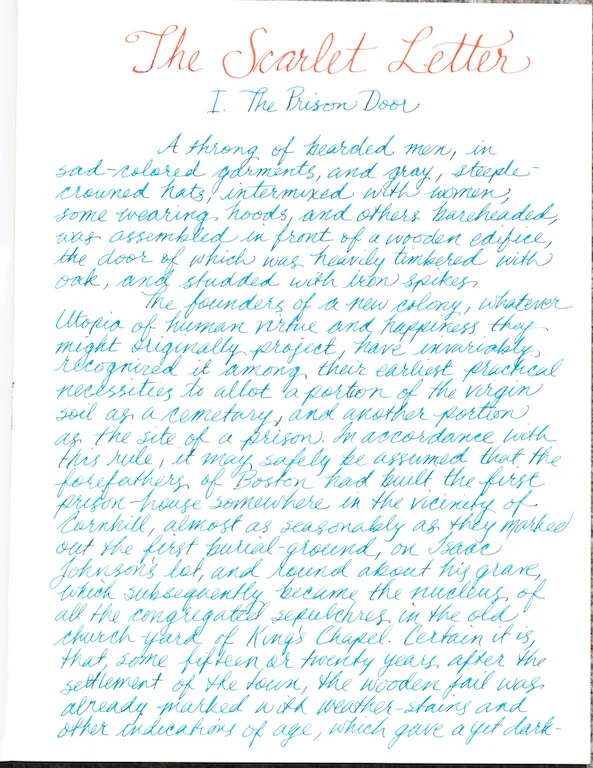 The Scarlet Letter
I. The Prison Door
A throng of bearded men, in
sad-colored garments, and gray, steeple-
crowned hats, intermixed with women,
some wearing hoods, and others bareheaded,
was assembled in front of a wooden edifice,
the door of which was heavily timbered with
oak, and studded with iron spikes.
The founders of a new colony, whatever
Utopia of human virtue and happiness they
might originally project, have invariably
recognized it among their earliest practical
necessities to allot a portion of the virgin
soil as a cemetary, and another portion
as the site of a prison. In accordance with
this rule, it may safely be assumed that the
forefathers of Boston had built the first
prison-house somewhere in the vicinity of
Cornhill, almost as seasonably as they marked
out the first burial-ground, on Isaac
Johnson's lot, and round about his grave,
which subsequently became the nucleus of
all the congregated sepulchres in the old
church yard of King's Chapel. Certain it is,
that, some fifteen or twenty years after the
settlement of the town, the wooden jail was
already marked with weather-stains and
other indications of age, which gave a yet dark-